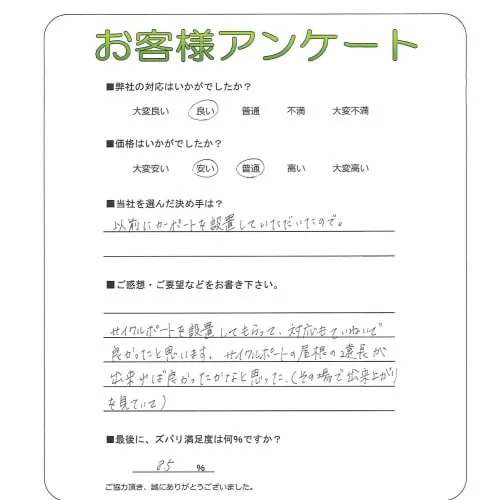 お客様アンケート
■弊社の対応はいかがでしたか？
大変良い 良い 普通 不満 大変不満
■価格はいかがでしたか？
大変安い 安い 普通 高い 大変高い
■当社を選んだ決め手は？
以前にカーポートを設置していただいたので。
■ご感想・ご要望などをお書き下さい。
サイクルポートを設置してもらって、対応もていねいで
良かったと思います。サイクルポートの屋根の延長が
出来れば良かったかなと思った。（その場で出来上がり
を見ていて）
■最後に、ズバリ満足度は何％ですか？
85 ％
ご協力頂き、誠にありがとうございました。